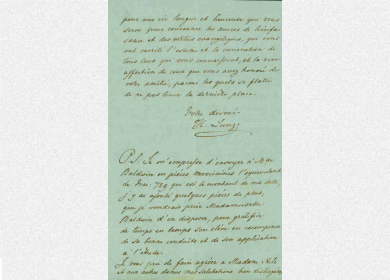 pour une vie longue et heureuse que vous
serve pour couronner vos œuvres de bienfai-
sance et des vertus évangeliques, qui vous
ont mérité l'estime et la vénération de
tous ceux qui vous connaissent, et la vraie
affection de ceux que vous avez honoré de
votre amitié, parmi les quels se flatte
de ne pas tenir la dernière place.
Votre dévoué
P.S. Je m'empresse d'envoyer à Mlle
Baldwin en pièces mexicaines l'équivalent
de 729 qui est le montant de ma dette
j'y ai ajouté quelques pièces de plus,
que je voudrais prier Mademoiselle
Baldwin d'en disposer, pour gratifier
de temps en temps son élève en récompense
de sa bonne conduite et de son application
à l'étude.
Je vous prie de faire agréer à Madame
et aux autres dames mes salutations